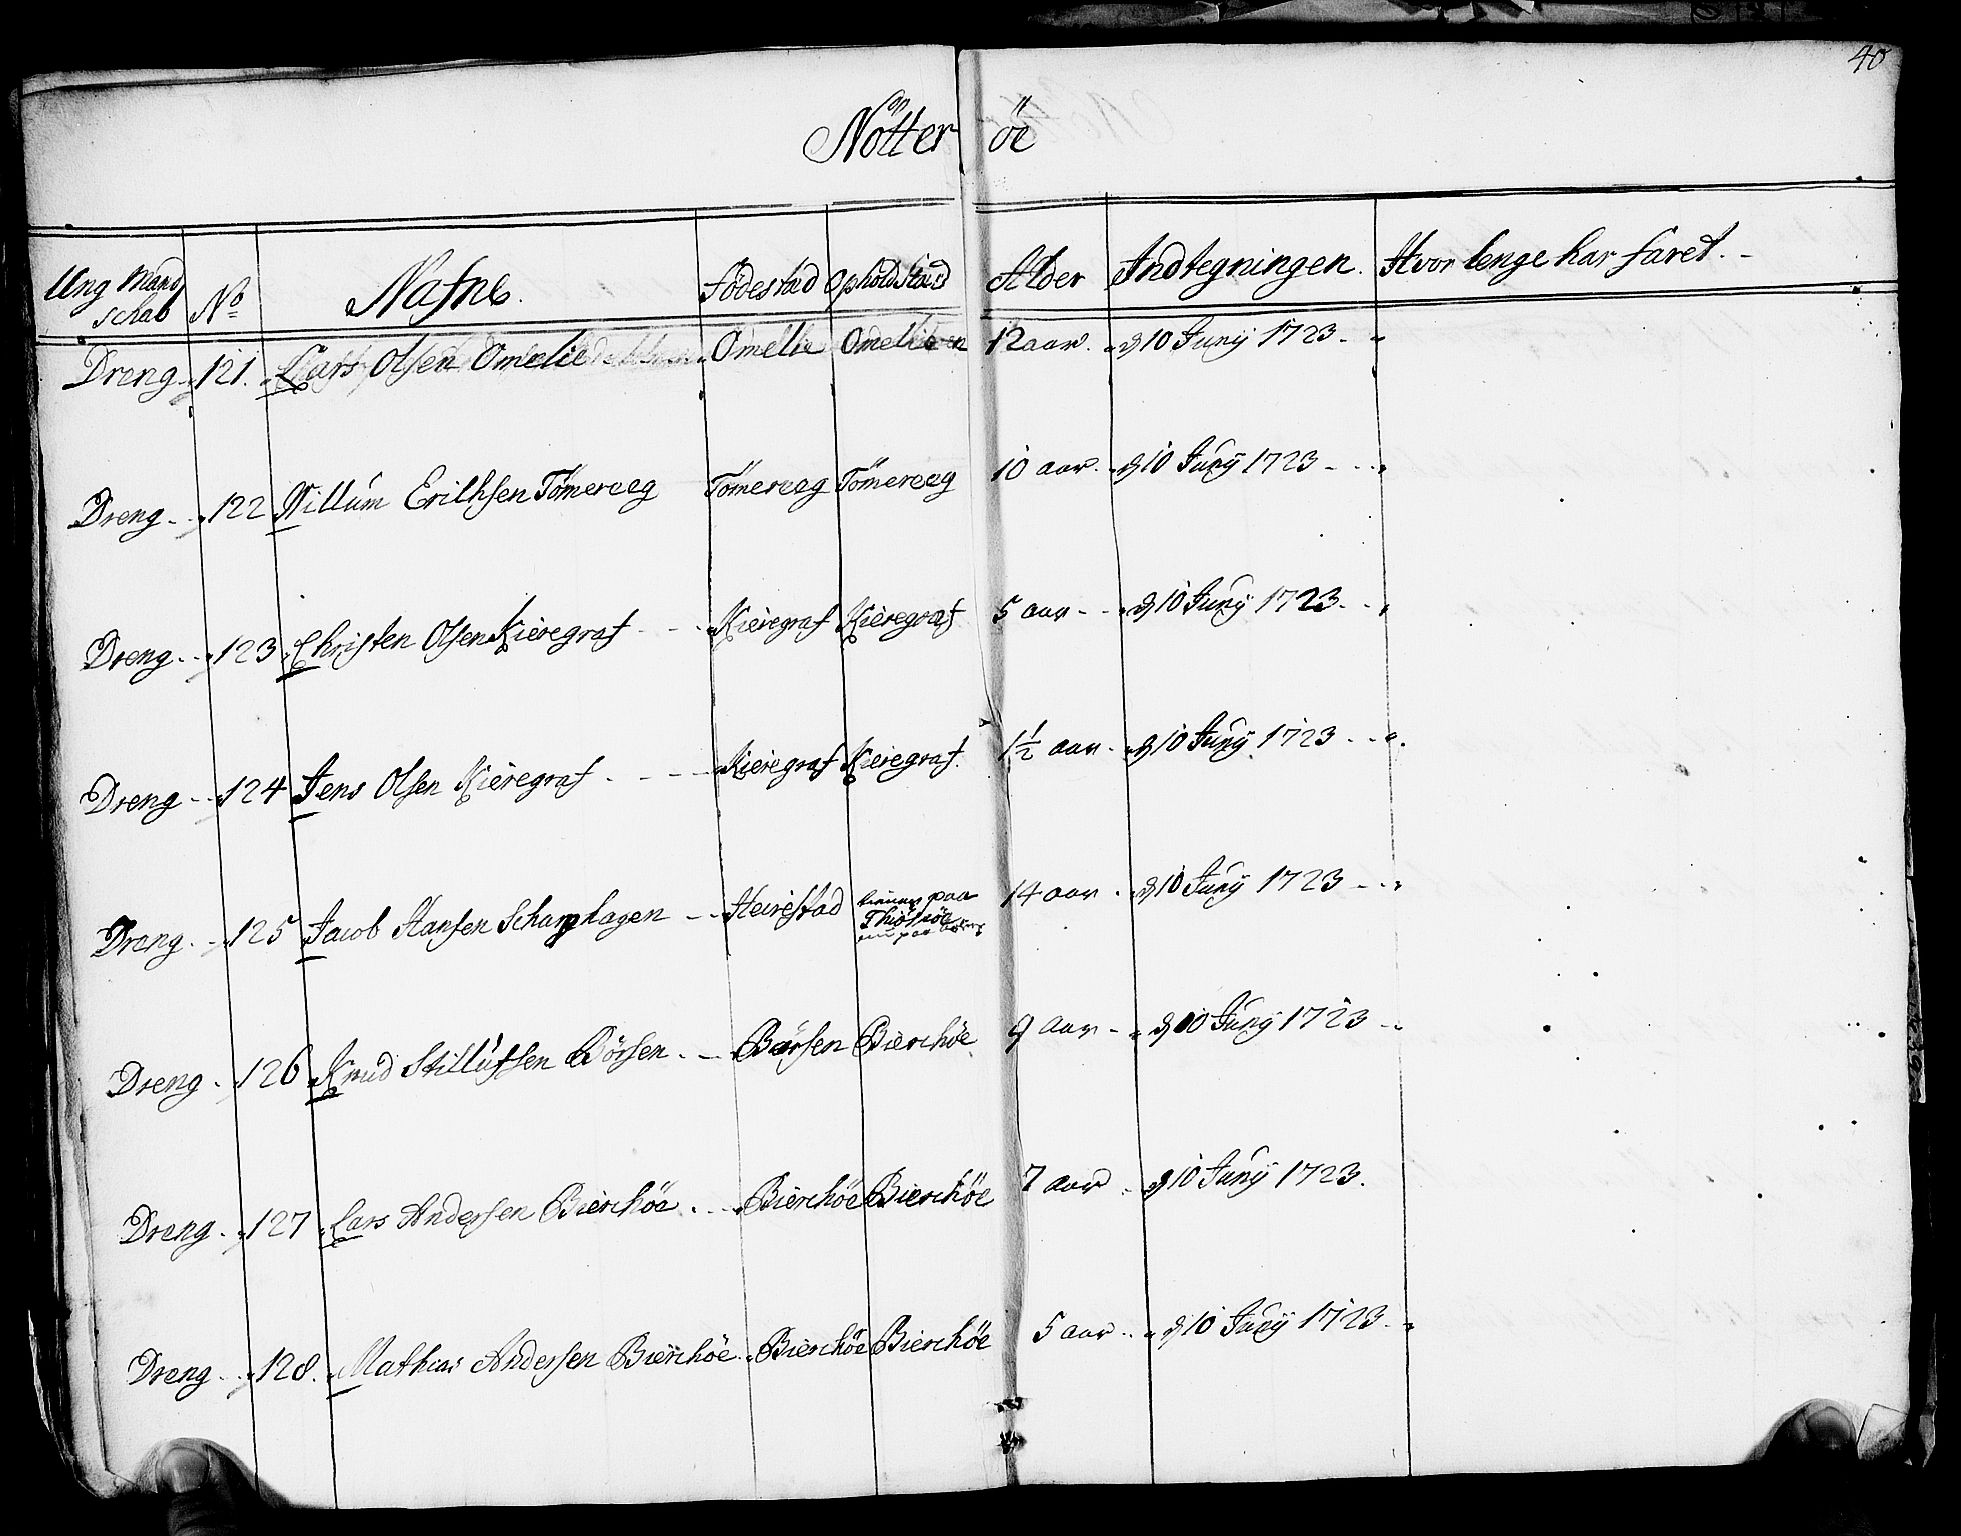 40
Nötter öe
Ung Mand schab No Nafne. Födestad Opholdstæd Alder Indtegningen. Hvor lenge har faret. -
Dreng 121. Lars Olsen Omelie Omelie Omelie 12 aar. d 10 Junÿ 1723. "
Dreng 122 Villum Erichsen Tömereeg Tömereeg Tömereeg 10 aar. d 10 Junÿ 1723 "
Dreng 123 Christen Olsen Kieregraf Kieregraf Kieregraf 5 aar d 10 Junÿ 1723 "
Dreng 124 Jens Olsen Kieregraf Kieregraf Kieregraf. 1½ aar d 10 Junÿ 1723 "
Dreng 125 Jacob Hansen Scharphagen Heirestad tiener paa Thiöm öe nu paa 14 aar d 10 Junÿ 1723 "
Dreng 126 Knud Stillufsen Börsen Börsen Bierchöe 9 aar d 10 Junÿ 1723 "
Dreng 127 Lars Andersen Bierchöe Bierchöe Bierchöe 7 aar d 10 Junÿ 1723.
Dreng 128. Mathias Andersen Bierchöe Bierchöe Bierchöe 5 aar d 10 Junÿ 1723 "